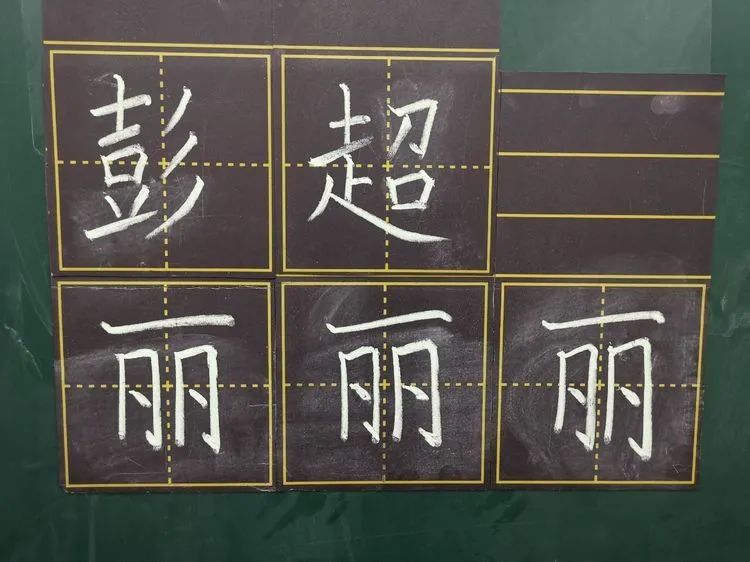 彭超
丽丽丽